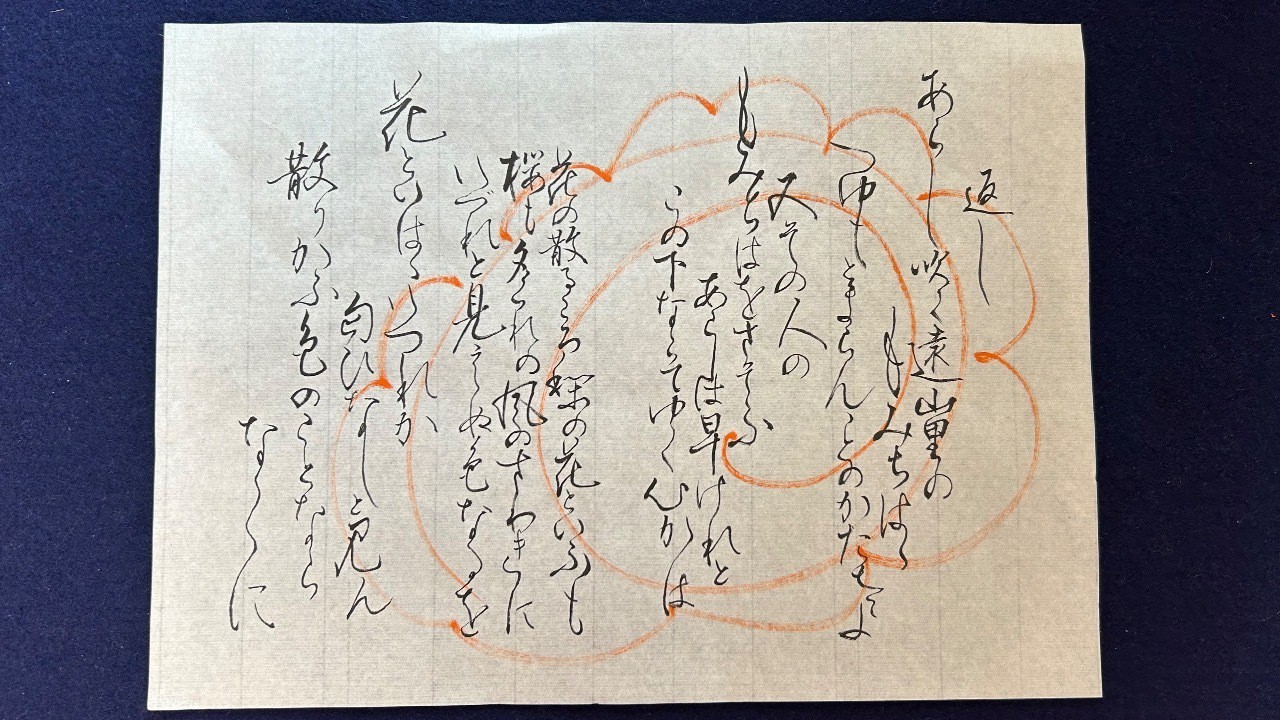 返し
あらし吹く遠山里の
もみちはゝ
つゆもとまらんことのかたさよ
又その人の
もみちはをさそふ
あらしは早けれと
この下ならてゆく心かは
花の散るころ梨の花といふも
桜も夕くれの風のさわきに
いづれと見えぬ色なるを
花といはゝいつれか
匂ひなしと見ん
散りかふ色のことなら
なくに